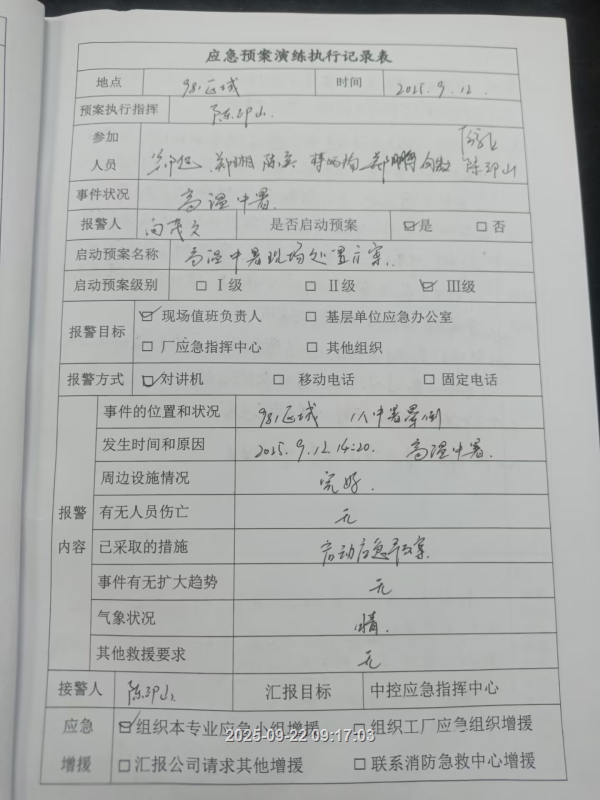 应急预案演练执行记录表
地点 981区域 时间 2025.9.12.
预案执行指挥 陈邛山.
参加人员 郑翔 陈实 郑鹏 陈邛山
事件状况 高温中暑.
报警人 向茂文 是否启动预案 ☑是 □否
启动预案名称 高温中暑现场处置方案.
启动预案级别 □Ⅰ级 □Ⅱ级 ☑Ⅲ级
报警目标 ☑现场值班负责人 □基层单位应急办公室
□厂应急指挥中心 □其他组织
报警方式 ☑对讲机 □移动电话 □固定电话
报警内容
事件的位置和状况 981区域 1人中暑晕倒
发生时间和原因 2025.9.12.14:20. 高温中暑.
周边设施情况 完好.
有无人员伤亡 无
已采取的措施 启动应急预案.
事件有无扩大趋势 无
气象状况 晴.
其他救援要求 无
接警人 陈邛山 汇报目标 中控应急指挥中心
应急增援 ☑组织本专业应急小组增援 □组织工厂应急组织增援
□汇报公司请求其他增援 □联系消防急救中心增援
2025-09-22 09:17:03